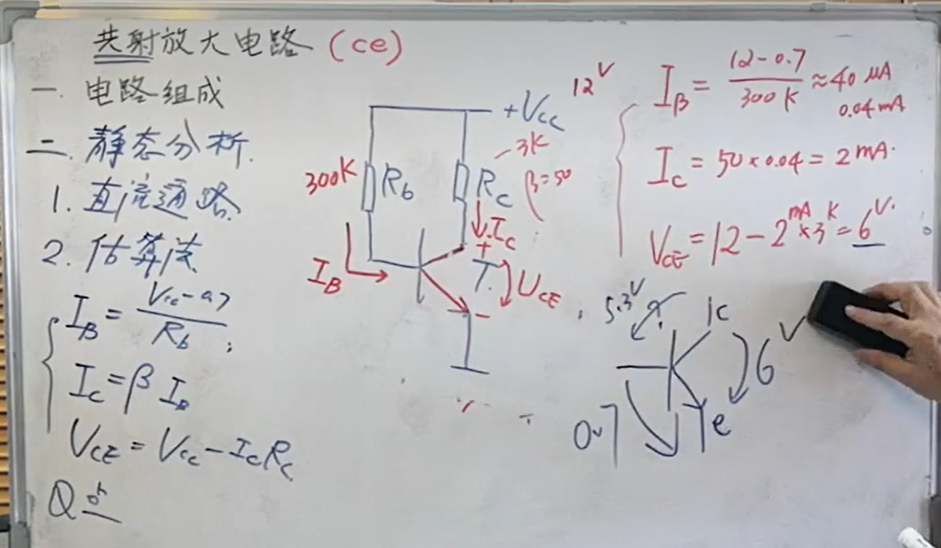 共射放大电路 (ce)
一. 电路组成
二. 静态分析.
1. 直流通路
2. 估算法
I_B = (Vcc-0.7)/R_b ;
I_C = β I_B
V_CE = Vcc - I_C R_C
Q点
+Vcc 12V
300K R_b
R_C 3K
β=50
I_C
I_B
+
T
U_CE
-
I_B = (12-0.7)/300K ≈ 40 μA
0.04mA
I_C = 50×0.04 = 2mA.
V_CE = 12 - 2mA×3K = 6V.
5.3V
c
6V
0.7
e